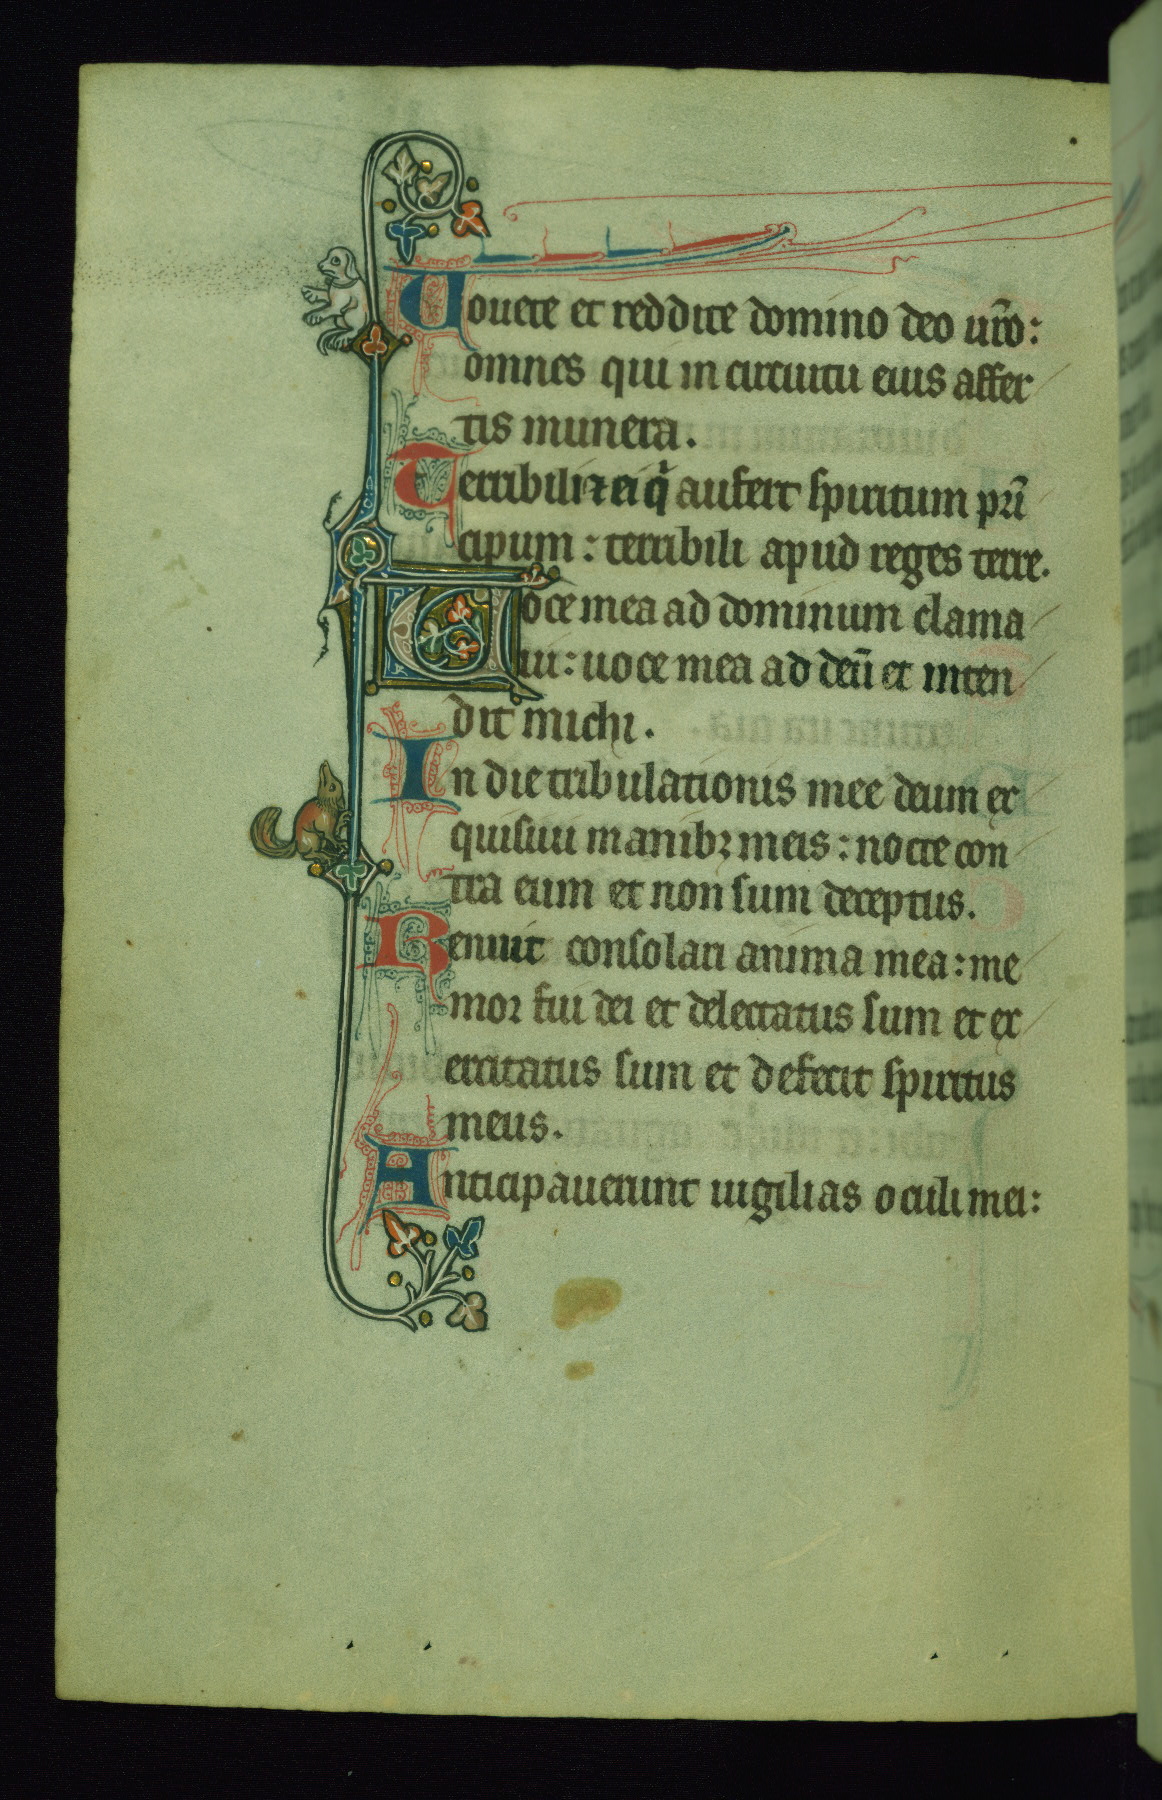 Uouete et reddite domino deo ur̄o:
omnes qui in circuitu eius affer
tis munera.
Terribili ⁊ ei q̄ aufert spiritum prī
cipum: terribili apud reges terre.
Uoce mea ad dominum clama
ui: uoce mea ad deū et inten
dit michi.
In die tribulationis mee deum ex
quisiui manibꝫ meis: nocte con
tra eum et non sum deceptus.
Renuit consolari anima mea: me
mor fui dei et delectatus sum et ex
ercitatus sum et defecit spiritus
meus.
Anticipauerunt uigilias oculi mei: